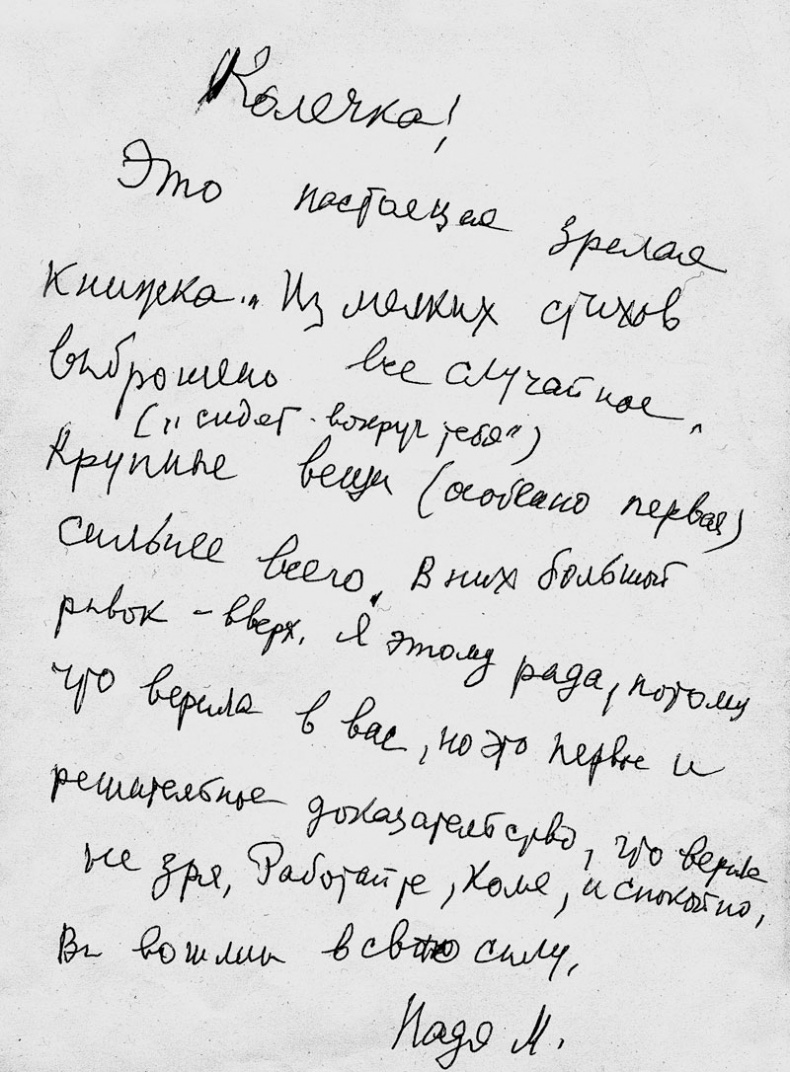 Колечка!
Это настоящая зрелая
книжка. Из мелких стихов
выброшено все случайное.
("сидят вокруг тебя")
Крупные вещи (особено первая)
сильнее всего. В них большой
рывок - вверх. Я этому рада, потому
что верила в вас, но это первое и
решительное доказательство, что верила
не зря. Работайте, Коля, и спокойно,
Вы вошли в свою силу.
Надя М.